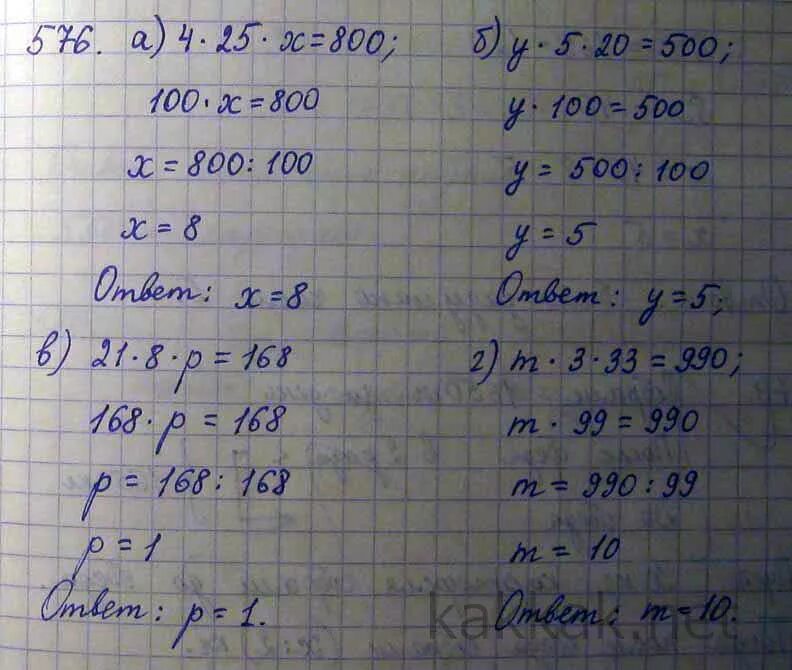 576. а) 4 · 25 · x = 800;
100 · x = 800
x = 800 : 100
x = 8
Ответ: x = 8
б) y · 5 · 20 = 500;
y · 100 = 500
y = 500 : 100
y = 5
Ответ: y = 5;
в) 21 · 8 · p = 168
168 · p = 168
p = 168 : 168
p = 1
Ответ: p = 1.
г) m · 3 · 33 = 990;
m · 99 = 990
m = 990 : 99
m = 10
Ответ: m = 10.
kakkak.net